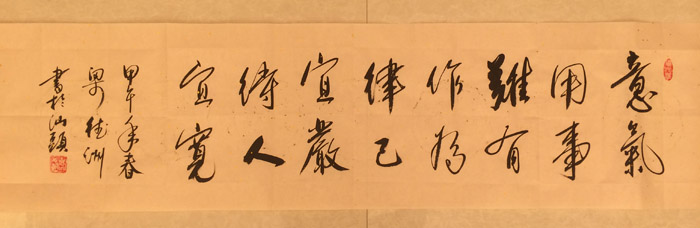 意氣
用事
難有
作為
律己
宜嚴
待人
宜寬
甲午年春
梁德洲
書於汕頭